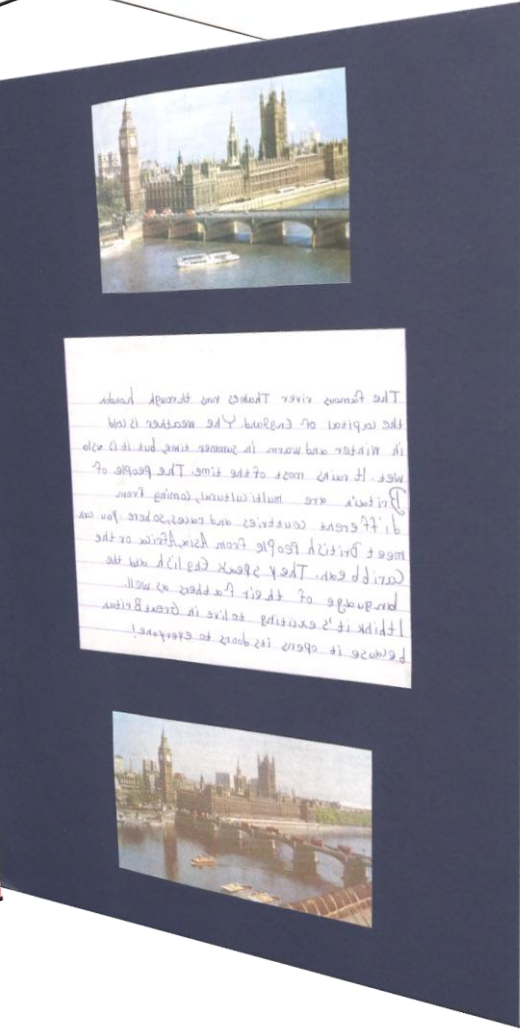 The famous river Thames runs through London
the capital of England. The weather is cold
in Winter and warm in summer time, but it is also
wet. It rains most of the time. The people of
Britain are multicultural, coming from
different countries and races, so here you can
meet British People from Asia, Africa or the
Caribbean. They speak English and the
language of their fathers as well.
I think it's exciting to live in Great Britan
because it opens its doors to everyone!